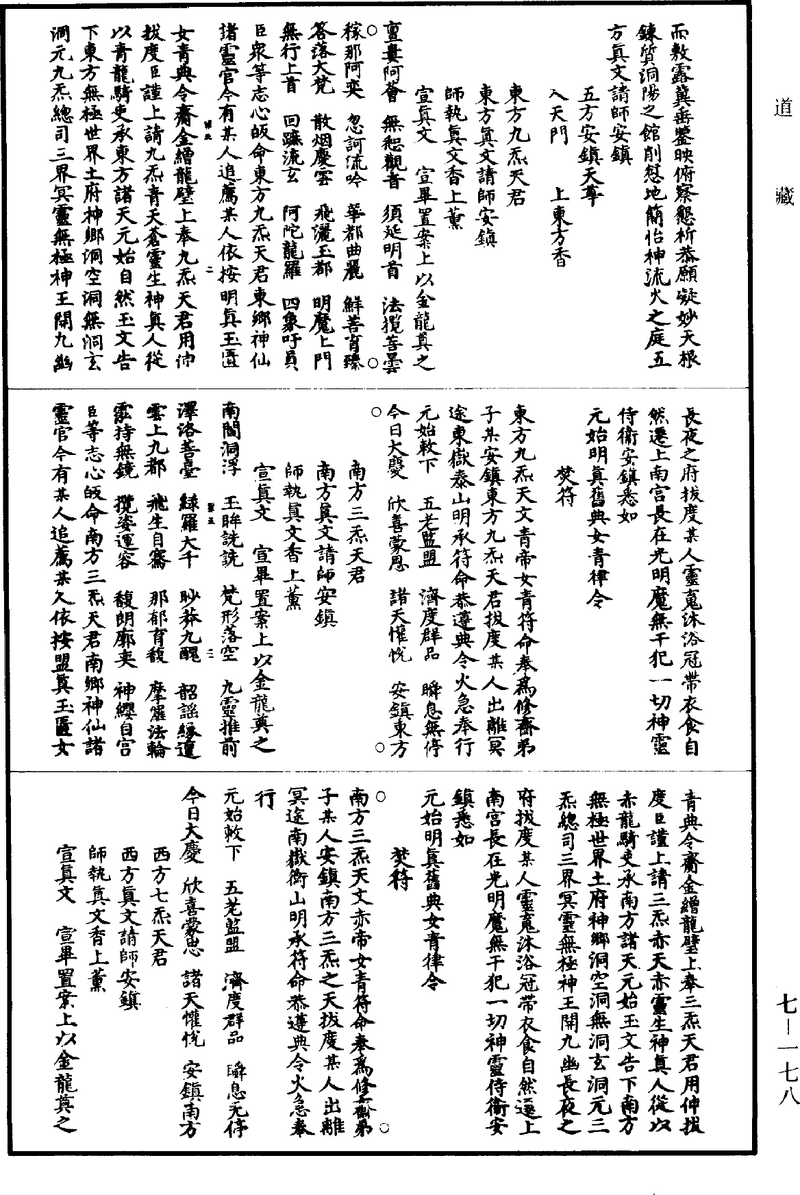 道藏
七—一七八
而敷露冀垂鑒映俯察懇祈恭願凝妙天根
鍊質洞陽之館削愆地簡怡神流火之庭五
方眞文請師安鎮
五方安鎮天尊
入天門　上東方香
東方九炁天君
東方眞文請師安鎮
師執眞文香上薰
宣眞文　宣畢置案上以金龍奠之
亶婁阿薈　無惒觀音　須延明首　法攬菩曇
稼那阿奕　忽訶流吟　華都曲麗　鮮菩育臻
答落大梵　散烟慶雲　飛灑玉都　明魔上門
無行上首　回蹠流玄　阿陀龍羅　四象吁員
臣衆等志心皈命東方九炁天君東鄉神仙
諸靈官今有某人追薦某人依按明眞玉匱
女青典令齎金繒龍璧上奉九炁天君用伸
拔度臣謹上請九炁青天蒼靈生神眞人從
以青龍騎吏承東方諸天元始自然玉文告
下東方無極世界土府神鄉洞空洞無洞玄
洞元九炁總司三界冥靈無極神王開九幽
長夜之府拔度某人靈䰟沐浴冠帶衣食自
然遷上南宮長在光明魔無干犯一切神靈
侍衛安鎮悉如
元始明眞舊典女青律令
焚符
東方九炁天文青帝女青符命奉爲修齋弟
子某安鎮東方九炁天君拔度某人出離冥
途東嶽泰山明承符命恭遵典令火急奉行
元始敕下　五老監盟　濟度群品　瞬息無停
今日大慶　欣喜蒙恩　諸天懽悅　安鎮東方
南方三炁天君
南方眞文請師安鎮
師執眞文香上薰
宣眞文　宣畢置案上以金龍奠之
南閻洞浮　玉眸詵詵　梵形落空　九靈推前
澤洛菩臺　綠羅大千　眇莽九醜　韶謠緣邅
雲上九都　飛生自騫　那郁育馥　摩羅法輪
霐持無鏡　攬姿運容　馥朗廓奕　神纓自宮
臣等志心皈命南方三炁天君南鄉神仙諸
靈官今有某人追薦某人依按盟眞玉匱女
青典令齎金繒龍璧上奉三炁天君用伸拔
度臣謹上請三炁赤天赤靈生神眞人從以
赤龍騎吏承南方諸天元始玉文告下南方
無極世界土府神鄉洞空洞無洞玄洞元三
炁總司三界冥靈無極神王開九幽長夜之
府拔度某人靈䰟沐浴冠帶衣食自然遷上
南宮長在光明魔無干犯一切神靈侍衛安
鎮悉如
元始明眞舊典女青律令
焚符
南方三炁天文赤帝女青符命奉爲修齋弟
子某人安鎮南方三炁之天拔度某人出離
冥途南嶽衡山明承符命恭遵典令火急奉
行
元始敕下　五老監盟　濟度群品　瞬息无停
今日大慶　欣喜蒙恩　諸天懽悅　安鎮南方
西方七炁天君
西方眞文請師安鎮
師執眞文香上薰
宣眞文　宣畢置案上以金龍奠之